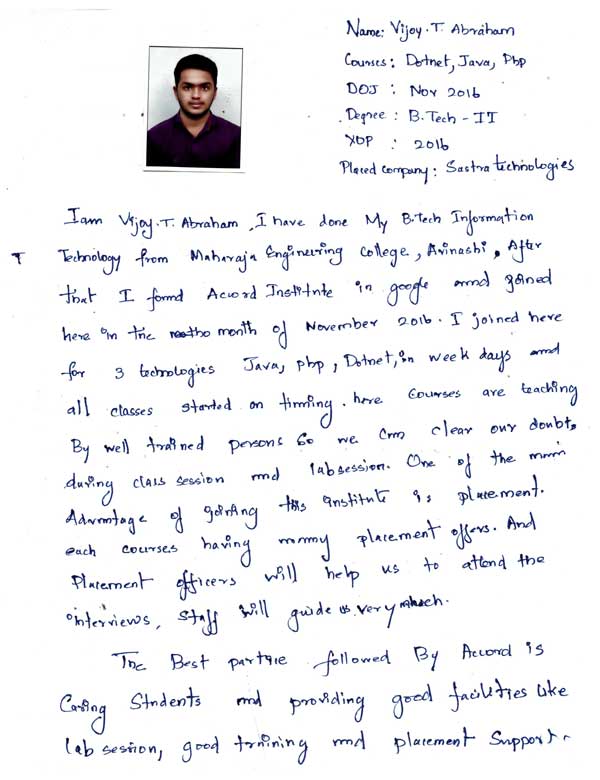 Name: Vijoy.T. Abraham
Courses: Dotnet, Java, Php
DOJ : Nov 2016
Degree : B.Tech - IT
YOP : 2016
Placed company: Sastra technologies
I am Vijoy.T. Abraham, I have done My B.Tech Information
Technology from Maharaja Engineering College, Avinashi, After
that I found Accord Institute in google and joined
here in the month of November 2016. I joined here
for 3 technologies Java, php, Dotnet, in week days and
all classes started on timing. here Courses are teaching
By well trained persons So we can clear our doubts
during class session and lab session. One of the main
Advantage of joining this institute is placement.
each courses having many placement offers. And
Placement officers will help us to attend the
interviews, Staff will guide us very much.
The Best followed By Accord is
Caring Students and providing good facilities like
lab session, good training and placement Support.